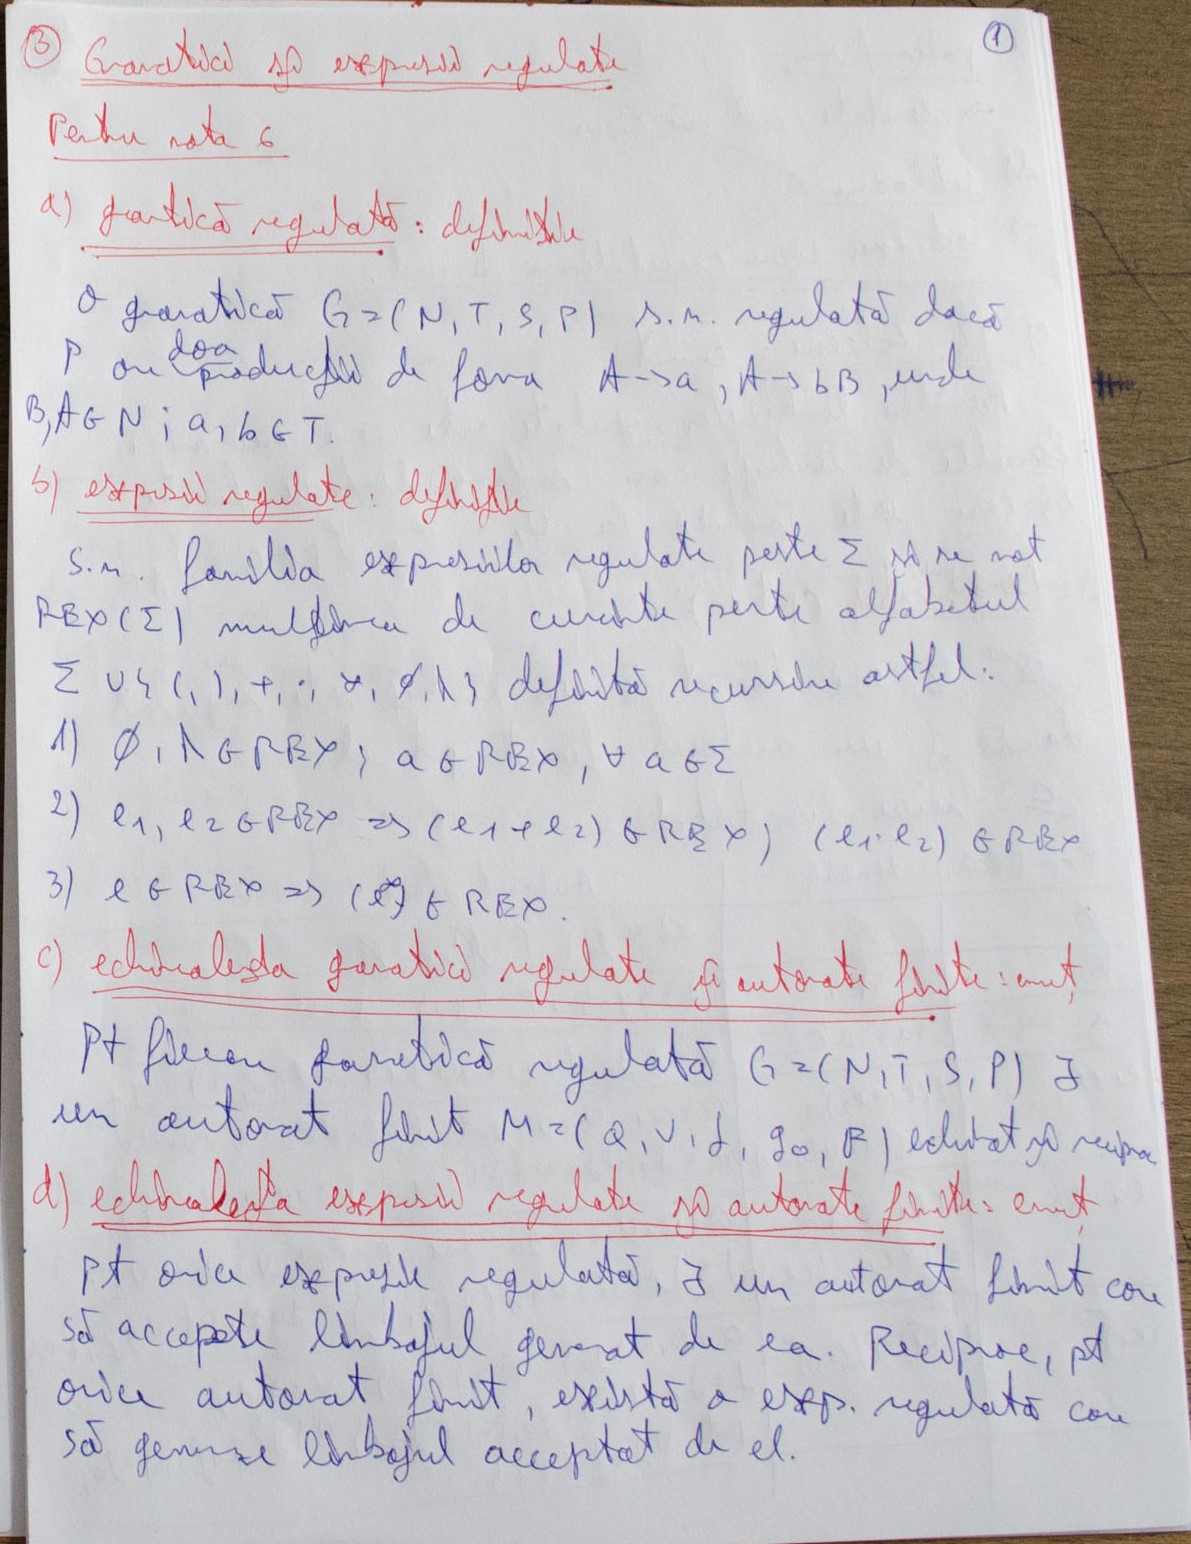 ③ Gramatici și expresii regulate ①
Pentru nota 6
a) gramatică regulată: definiție
O gramatică G=(N,T,S,P) s.n. regulată dacă
P are doar producții de forma A->a, A->bB, unde
B,A∈N; a,b∈T.
b) expresii regulate: definiție
S.n. familia expresiilor regulate peste Σ și se not
REX(Σ) mulțimea de cuvinte peste alfabetul
Σ∪{(,),+,·,*,∅,λ} definită recursiv astfel:
1) ∅,λ∈REX; a∈REX, ∀a∈Σ
2) e1,e2∈REX => (e1+e2)∈REX; (e1·e2)∈REX
3) e∈REX => (e*)∈REX.
c) echivalența gramatici regulate și automate finite: enunț
Pt fiecare gramatică regulată G=(N,T,S,P) ∃
un automat finit M=(Q,V,δ,q0,F) echivalent și reciproc
d) echivalența expresii regulate și automate finite: enunț
Pt orice expresie regulată, ∃ un automat finit care
să accepte limbajul generat de ea. Reciproc, pt
orice automat finit, există o exp. regulată care
să genereze limbajul acceptat de el.